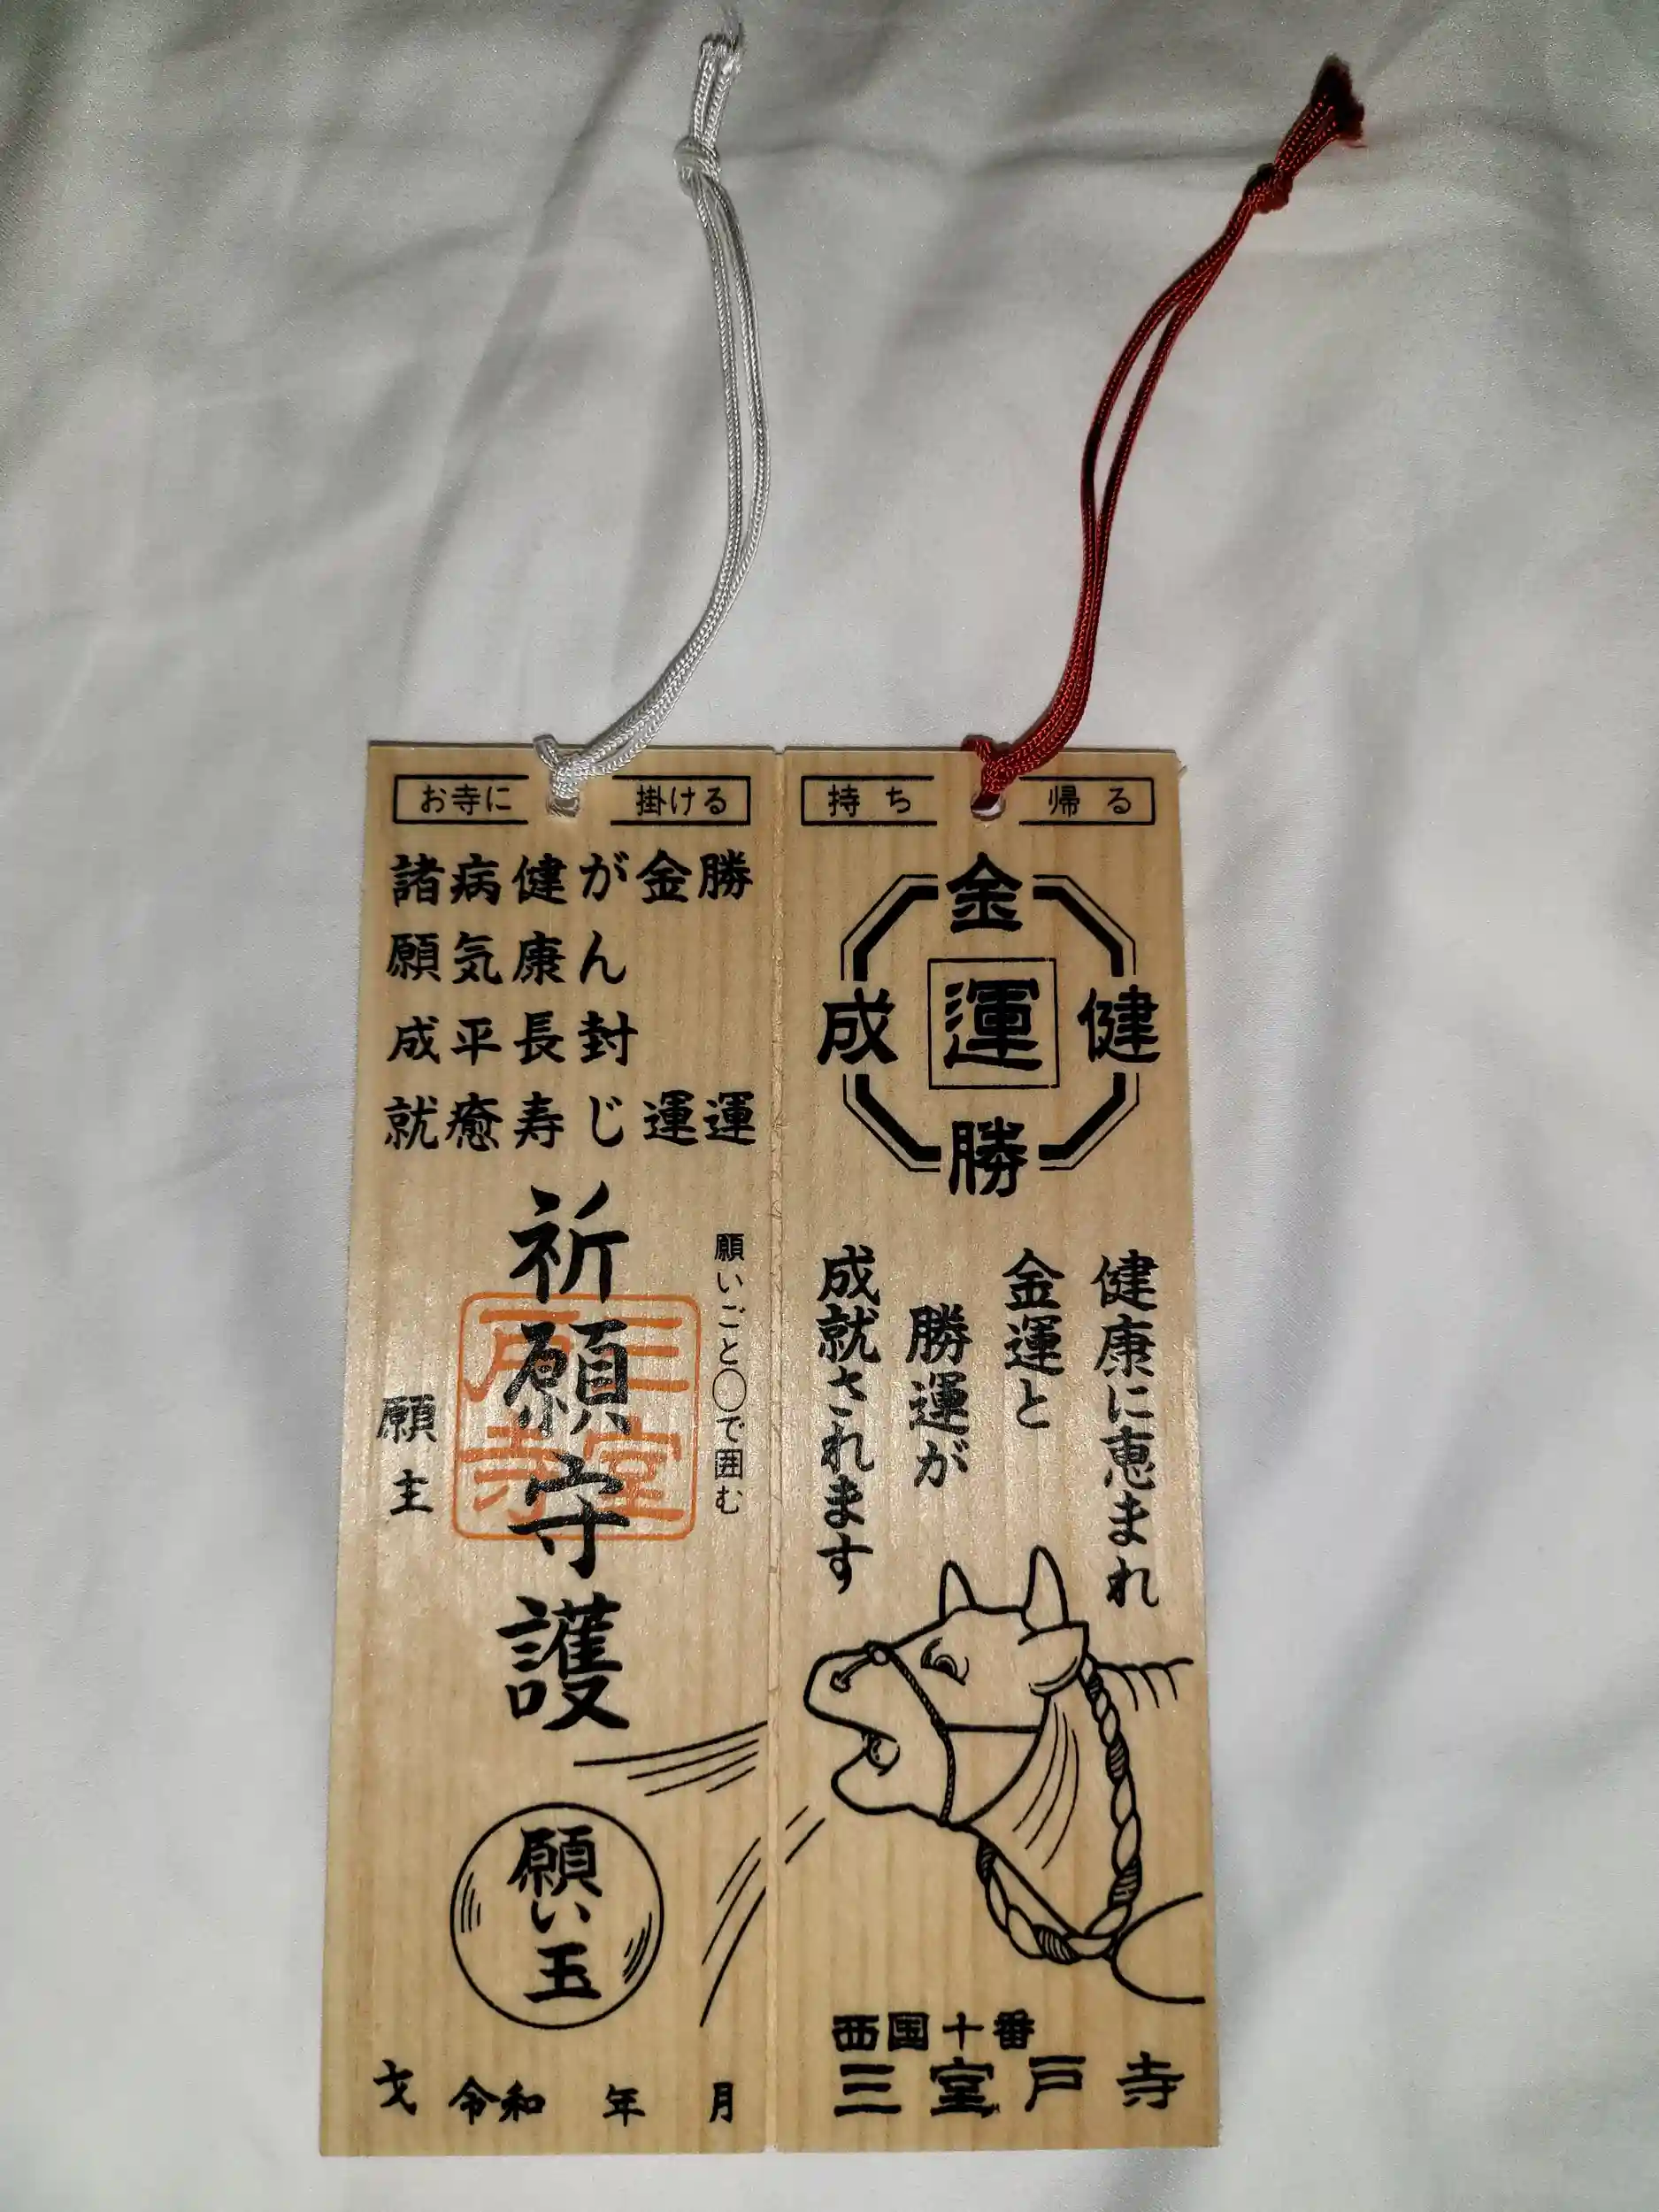 お寺に 掛ける
勝運
金運
がん封じ
健康長寿
病気平癒
諸願成就
願いごと〇で囲む
祈願守護
三室戸寺
願主
願い玉
才 令和 年 月
持ち 帰る
金
成 運 健
勝
健康に恵まれ
金運と
勝運が
成就されます
西国十番
三室戸寺